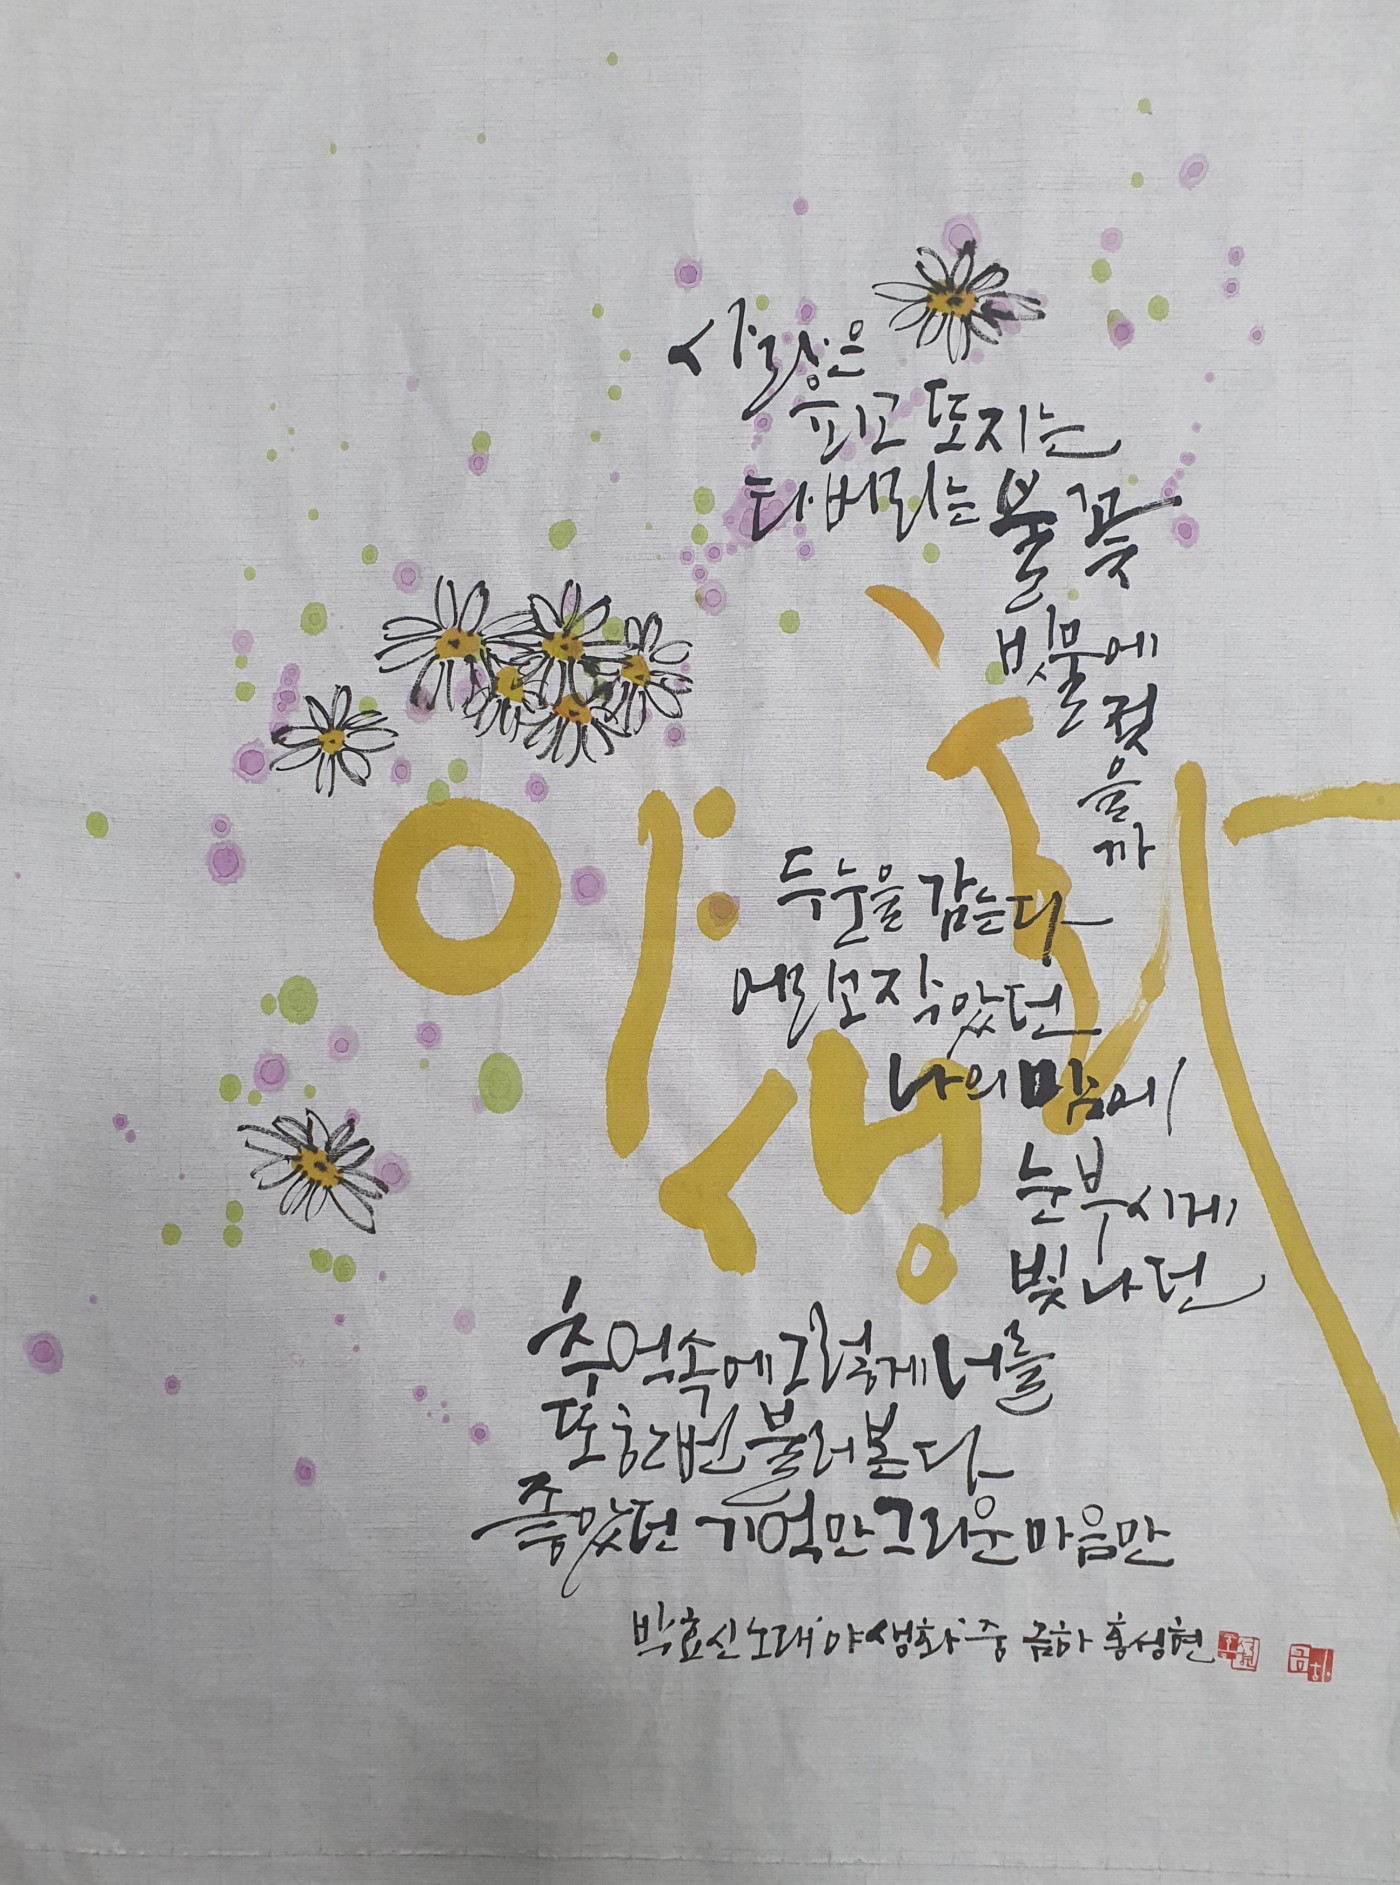 사랑은
피고 또 지는
타버리는 불꽃
빗물에
젖
을
까
두 눈을 감는다
어리고 작았던
나의 맘에
눈부시게
빛나던
야생화
추억속에 그렇게 너를
또 한번 불러본다
좋았던 기억만 그리운 마음만
박효신 노래 '야생화' 중 금하 홍성현
금하